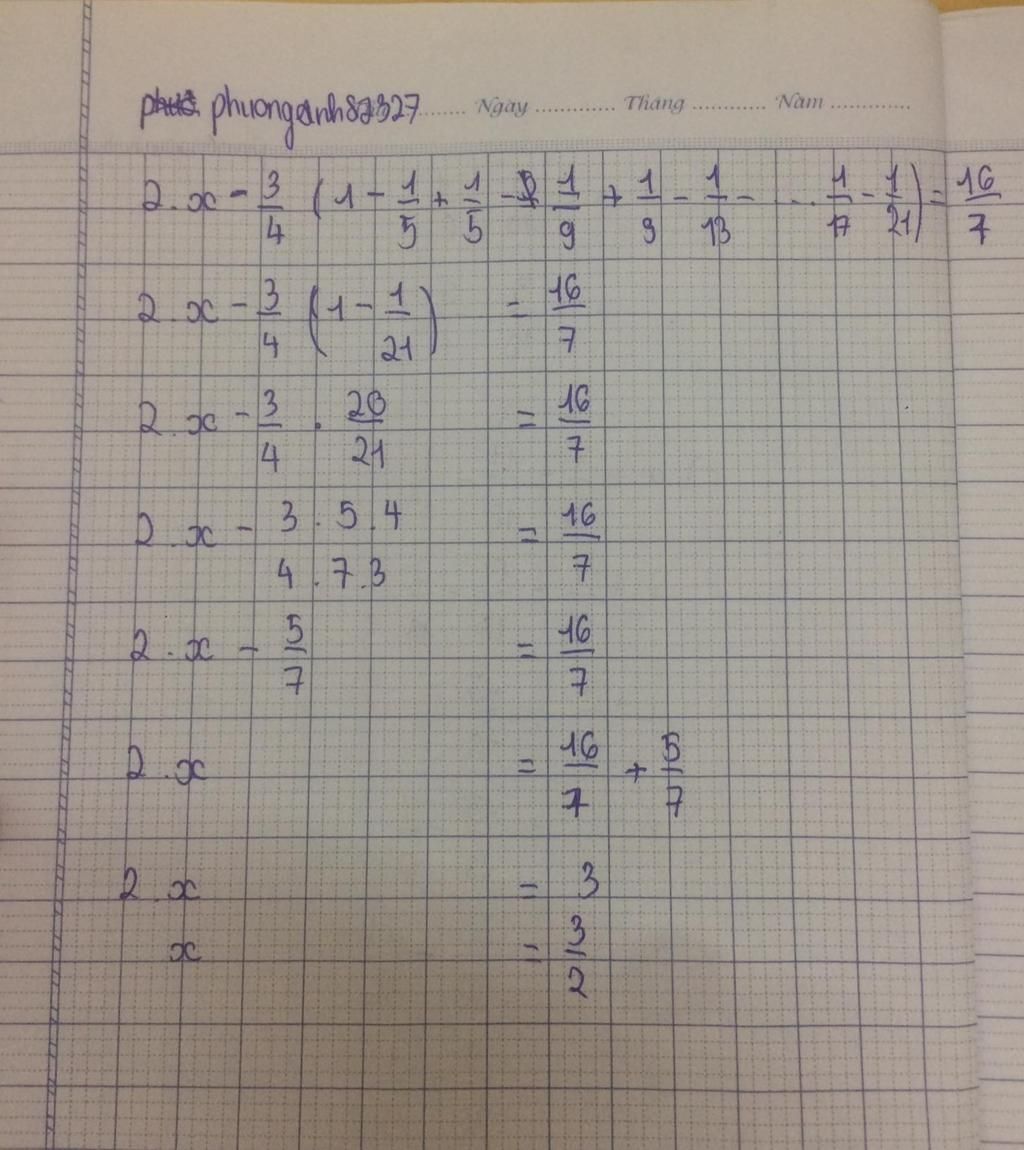 phuonganh82327 ........ Ngày ............ Tháng ........... Năm ............
2.x - 3/4 (1 - 1/5 + 1/5 - 1/9 + 1/9 - 1/13 - ... 1/17 - 1/21) = 16/7
2.x - 3/4 (1 - 1/21) = 16/7
2.x - 3/4 . 20/21 = 16/7
2.x - 3.5.4 / 4.7.3 = 16/7
2.x - 5/7 = 16/7
2.x = 16/7 + 5/7
2.x = 3
x = 3/2